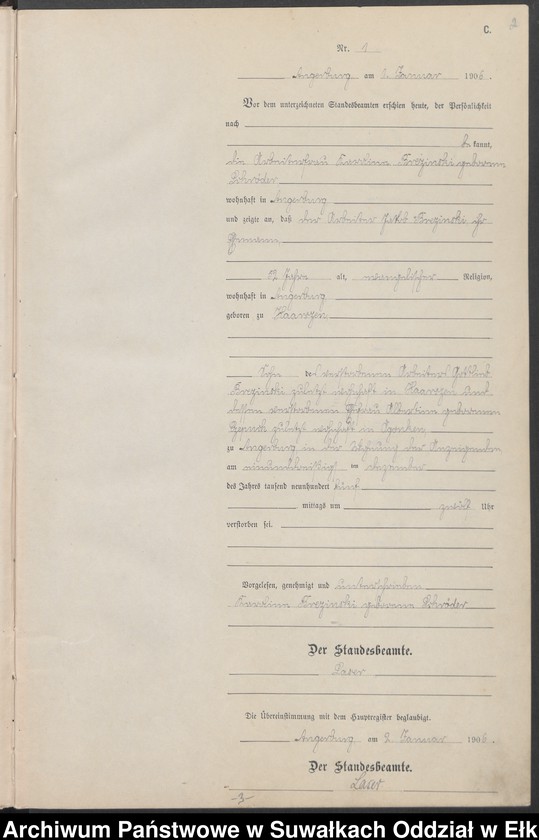 C.
2
Nr. 1
Angerburg am 2. Januar 1906.
Vor dem unterzeichneten Standesbeamten erschien heute, der Persönlichkeit
nach
be kannt,
die Arbeiterfrau Karoline geborene
Schröder
wohnhaft in Angerburg
und zeigte an, daß der Arbeiter ihr
Ehemann
52 Jahre alt, evangelischer Religion,
wohnhaft in Angerburg
geboren zu Haarszen
Sohn des verstorbenen Arbeiters Gottlieb
zuletzt wohnhaft in Haarszen und
dessen verstorbenen Ehefrau geborenen
zuletzt wohnhaft in
zu Angerburg in der Wohnung der Anzeigenden
am einunddreißigsten Dezember
des Jahres tausend neunhundert fünf
mittags um zwölf Uhr
verstorben sei.
Vorgelesen, genehmigt und unterschrieben
Karoline geborene Schröder
Der Standesbeamte.
Laser
Die Übereinstimmung mit dem Hauptregister beglaubigt.
Angerburg am 2. Januar 1906.
Der Standesbeamte.
Laser
-3-
Archiwum Państwowe w Suwałkach Oddział w Ełk